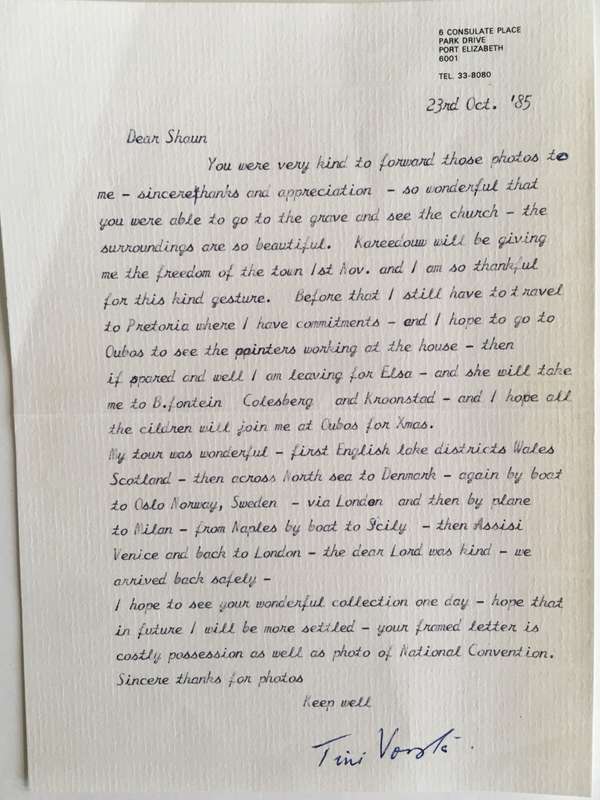 6 CONSULATE PLACE
PARK DRIVE
PORT ELIZABETH
6001
TEL. 33-8080
23rd Oct. '85
Dear Shaun
You were very kind to forward those photos to
me - sincere thanks and appreciation - so wonderful that
you were able to go to the grave and see the church - the
surroundings are so beautiful. Kareedouw will be giving
me the freedom of the town 1st Nov. and I am so thankful
for this kind gesture. Before that I still have to travel
to Pretoria where I have commitments - and I hope to go to
Oubos to see the painters working at the house - then
if spared and well I am leaving for Elsa - and she will take
me to B.fontein Colesberg and Kroonstad - and I hope all
the cildren will join me at Oubos for Xmas.
My tour was wonderful - first English lake districts Wales
Scotland - then across North sea to Denmark - again by boat
to Oslo Norway, Sweden - via London and then by plane
to Milan - from Naples by boat to Sicily - then Assisi
Venice and back to London - the dear Lord was kind - we
arrived back safely -
I hope to see your wonderful collection one day - hope that
in future I will be more settled - your framed letter is
costly possession as well as photo of National Convention.
Sincere thanks for photos
Keep well
Tini Vorster